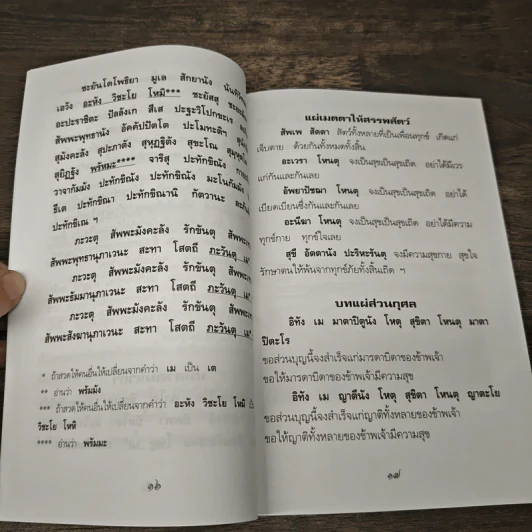 ชะยันโตโพธิยา มูเล สักยานัง
เอวัง อะหัง วิชะโย โหมิ*** ชะยัสสุ
อะปะราชิตะ ปัลลังเก สีเส ปะฐะวิโปกขะเร
สัพพะพุทธานัง อัคคัปปัตโต ปะโมทะติฯ
สุมังคะลัง สุปะภาตัง สุหุฏฐิตัง สุขะโณ
สุยิฏฐัง พรัหมะ**** จาริสุ ปะทักขิณัง
วาจากัมมัง ปะทักขิณัง ปะทักขิณัง มะโนกัมมัง
ธีเต ปะทักขิณา ปะทักขิณานิ กัตวานะ
ปะทักขิเณ ฯ
ภะวะตุ สัพพะมังคะลัง รักขันตุ
สัพพะพุทธานุภาเวนะ สะทา โสตถี ภะวันตุ
ภะวะตุ สัพพะมังคะลัง รักขันตุ
สัพพะธัมมานุภาเวนะ สะทา โสตถี ภะวันตุ
ภะวะตุ สัพพะมังคะลัง รักขันตุ
สัพพะสังฆานุภาเวนะ สะทา โสตถี ภะวันตุ
* ถ้าสวดให้คนอื่นให้เปลี่ยนจากคำว่า เม เป็น เต
** อ่านว่า พรัมมัง
*** ถ้าสวดให้คนอื่นให้เปลี่ยนจากคำว่า อะหัง วิชะโย โหมิ
วิชะโย โหหิ
**** อ่านว่า พรัมมะ
๑๖
แผ่เมตตาให้สรรพสัตว์
สัพเพ สัตตา สัตว์ทั้งหลายที่เป็นเพื่อนทุกข์ เกิดแก่
เจ็บตาย ด้วยกันทั้งหมดทั้งสิ้น
อะเวรา โหนตุ จงเป็นสุขเป็นสุขเถิด อย่าได้มีเวร
แก่กันและกันเลย
อัพยาปัชฌา โหนตุ จงเป็นสุขเป็นสุขเถิด อย่าได้
เบียดเบียนซึ่งกันและกันเลย
อะนีฆา โหนตุ จงเป็นสุขเป็นสุขเถิด อย่าได้มีความ
ทุกข์กาย ทุกข์ใจเลย
สุขี อัตตานัง ปะริหะรันตุ จงมีความสุขกาย สุขใจ
รักษาตนให้พ้นจากทุกข์ภัยทั้งสิ้นเถิด ฯ
บทแผ่ส่วนกุศล
อิทัง เม มาตาปิตูนัง โหตุ สุขิตา โหนตุ มาตา
ปิตะโร
ขอส่วนบุญนี้จงสำเร็จแก่มารดาบิดาของข้าพเจ้า
ขอให้มารดาบิดาของข้าพเจ้ามีความสุข
อิทัง เม ญาตีนัง โหตุ สุขิตา โหนตุ ญาตะโย
ขอส่วนบุญนี้จงสำเร็จแก่ญาติทั้งหลายของข้าพเจ้า
ขอให้ญาติทั้งหลายของข้าพเจ้ามีความสุข
๑๗